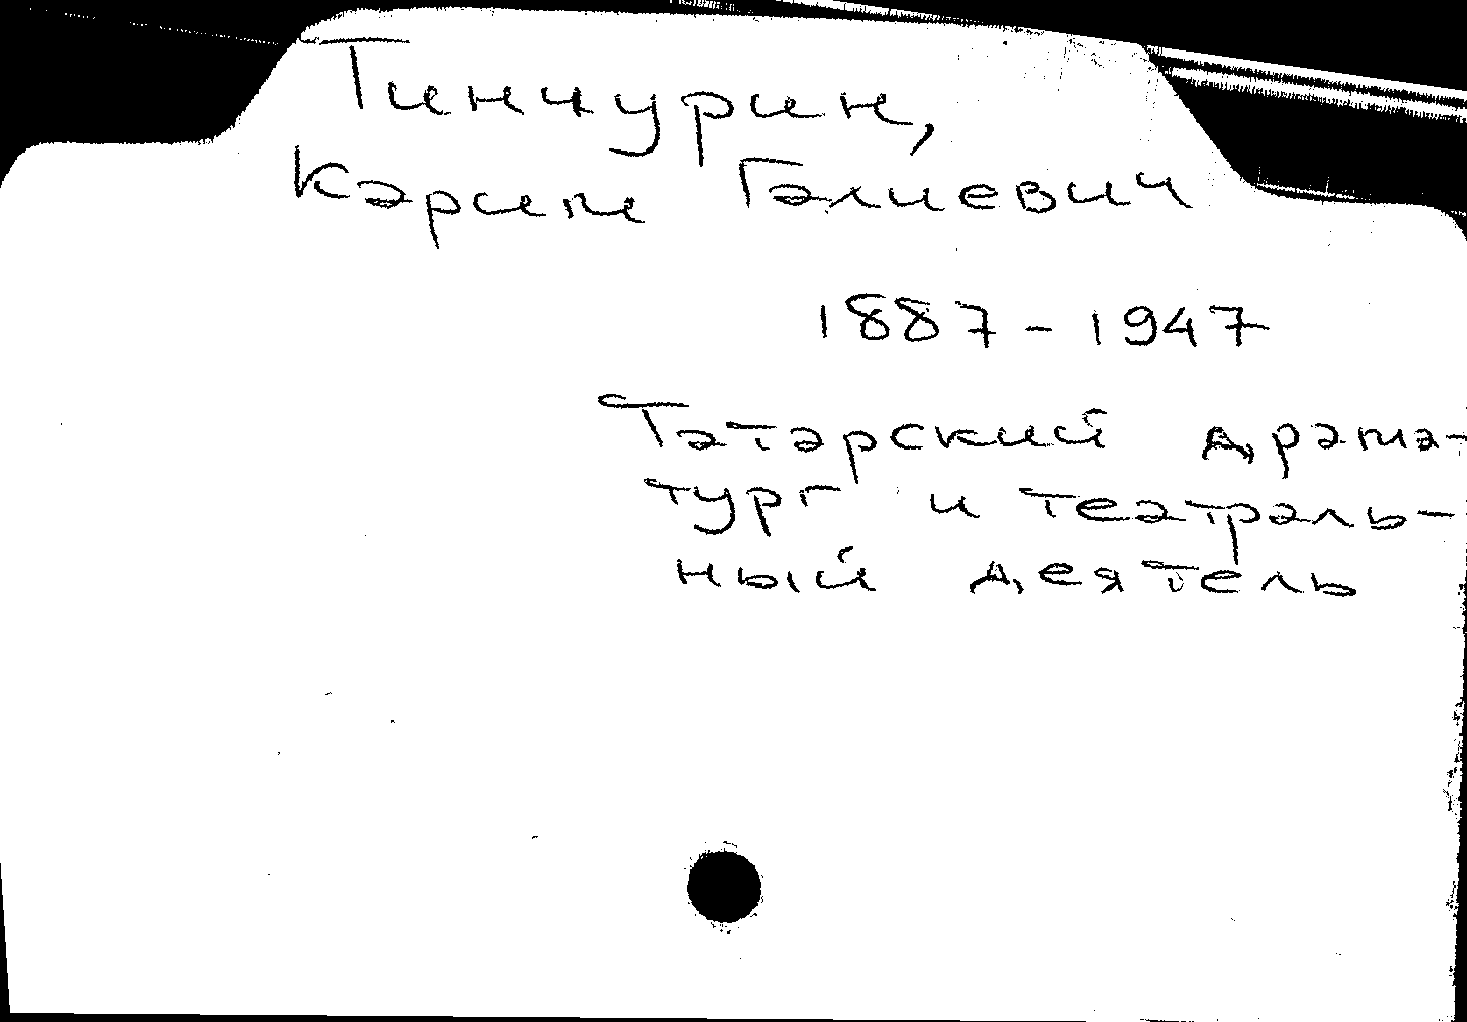 Тинчурин,
Карим Галиевич
1887-1947
Татарский драма-
тург и театраль-
ный деятель